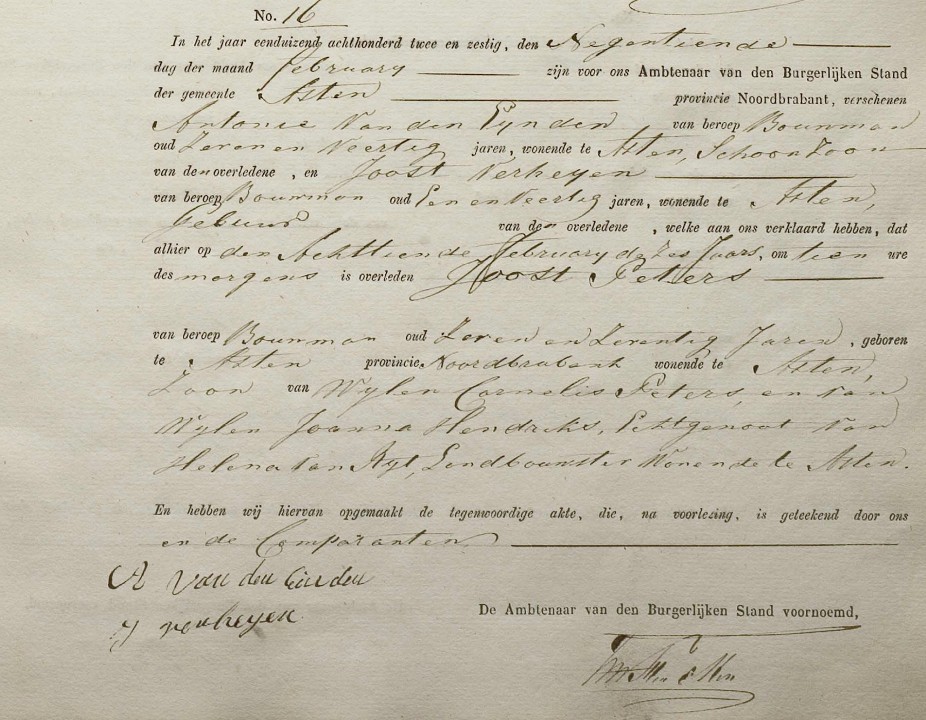 No. 16
In het jaar eenduizend achthonderd twee en zestig, den Negentiende
dag der maand February zijn voor ons Ambtenaar van den Burgerlijken Stand
der gemeente Asten provincie Noordbrabant, verschenen
Antonie Van den Eynden van beroep Bouwman
oud Zeven en Veertig jaren, wonende te Asten, Schoon Zoon
van den overledene , en Joost Verheyen
van beroep Bouwman oud Een en Veertig jaren, wonende te Asten,
Gebuur van den overledene , welke aan ons verklaard hebben, dat
alhier op den Achttiende February dezes Jaars, om tien ure
des morgens is overleden Joost Peters
van beroep Bouwman oud Zeven en Zeventig Jaren , geboren
te Asten provincie Noordbrabant wonende te Asten,
Zoon van Wylen Cornelis Peters, en van
Wylen Joanna Hendriks, Echtgenoot van
Helena Van Ryt, Landbouwster Wonende te Asten.
En hebben wij hiervan opgemaakt de tegenwoordige akte, die, na voorlezing, is geteekend door ons
en de Comparanten
A van den Einden
J verheyen
De Ambtenaar van den Burgerlijken Stand voornoemd,